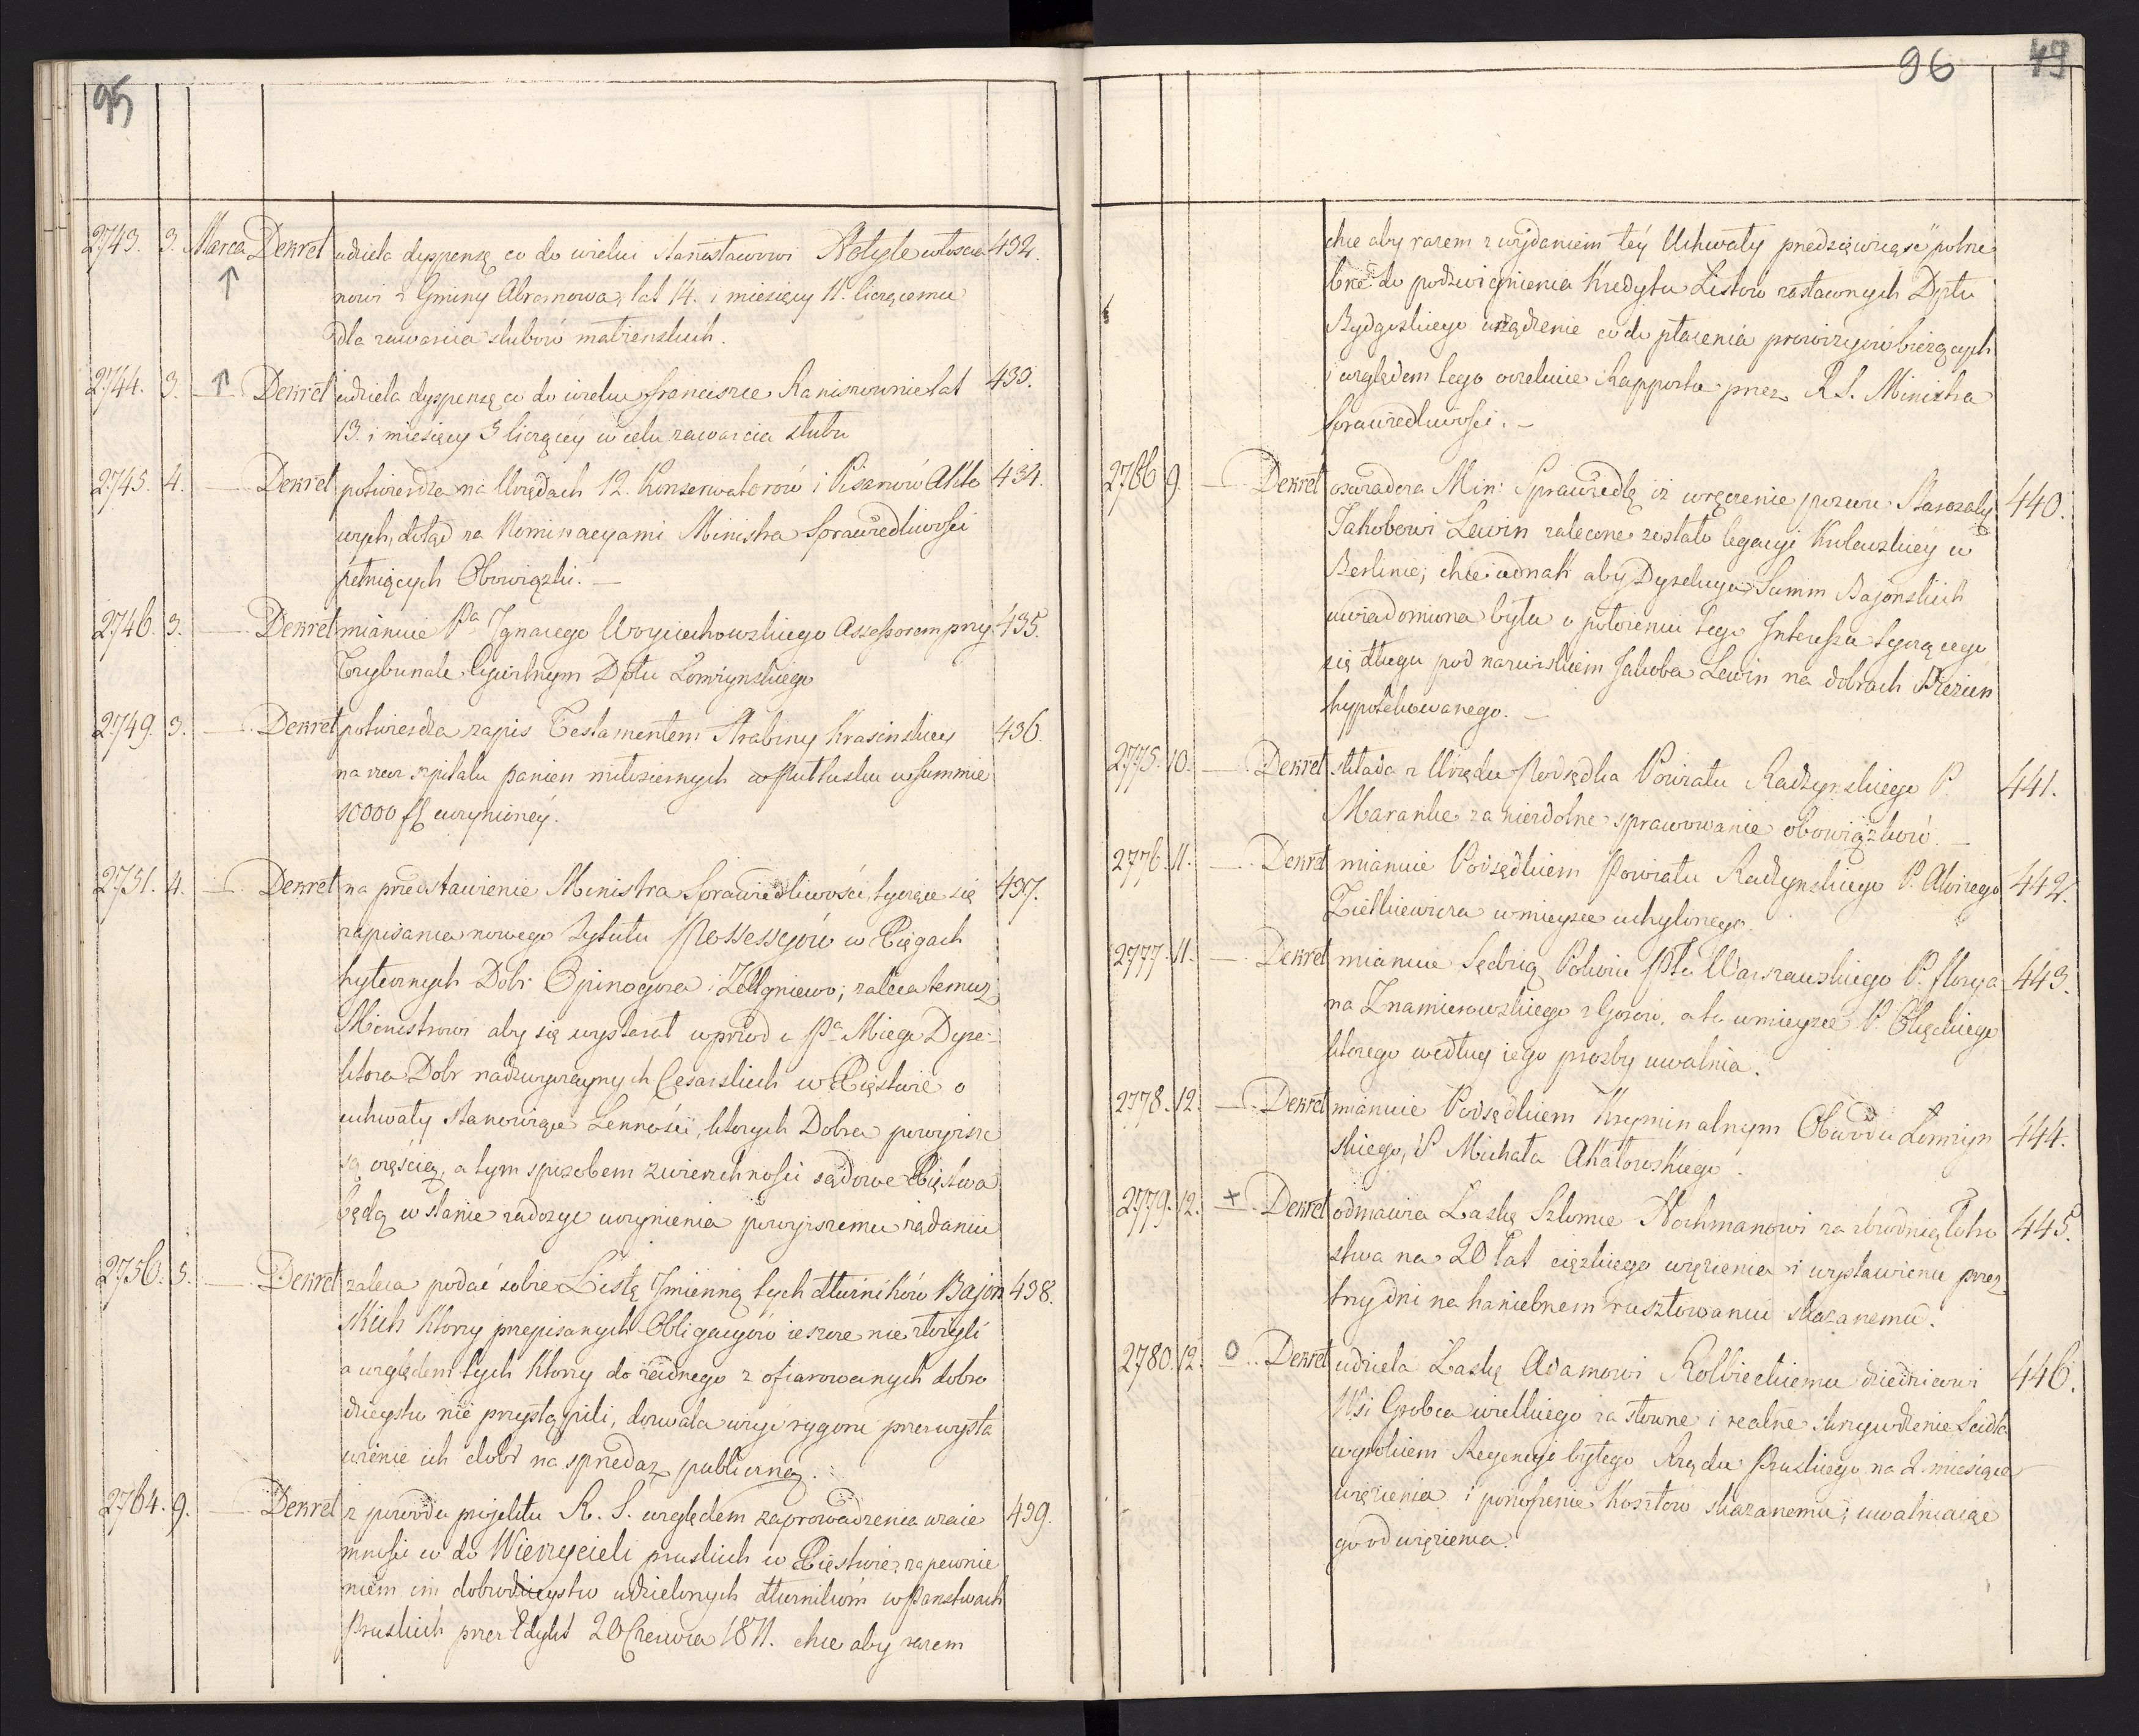 95
2743. 3. Marca Dekret udziela dyspensę co do wieku Stanisławowi Kotyle włościa 432.
nowi z Gminy Abramowa, lat 14. i miesięcy 11. liczącemu
dla zawarcia ślubów małżenskich.
2744. 3. Dekret udziela dyspensę co do wieku Franciszce Kaniszewnie lat 433.
13. i miesięcy 3 liczącey w celu zawarcia ślubu
2745. 4. — Dekret potwierdza na Urzędach 12. Konserwatorów i Pisarzów Akto 434.
wych, dotąd za Nominacyami Ministra Sprawiedliwości
pełniących Obowiązki. —
2746. 3. — Dekret mianuie Pa Ignacego Woyciechowskiego Assessorem przy 435.
Trybunale Cywilnym Dptu Łomżynskiego
2749. 3. — Dekret potwierdza zapis Testamentem Hrabiny Krasinskiey 436.
na rzecz szpitalu panien miłosiernych w Pułtusku w summie
10000 fl uczynioney.
2751. 4. — Dekret na przedstawienie Ministra Sprawiedliwości, tyczące się 437.
zapisania nowego tytułu Possessyów w Xięgach
hytecznych Dobr Opinogora i Zelgniewo; zaleca temuz
Ministrowi aby się wystarał wprzod u Pa Miege Dyre-
ktora Dobr nadzwyczaynych Cesarskich w Xięstwie o
uchwały stanowiące Lenności, ktorych Dobra powyzsze
są częścią, a tym sposobem zwierzchności sądowe Xięstwa
będą w stanie zadosyc uczynienia powyzszemu ządaniu
2756. 5. — Dekret zaleca podać sobie Listę Imienną tych dłużników Bajon 438.
skich ktorzy przepisanych Obligacyów ieszcze nie złożyli
a względem tych ktorzy do żadnego z ofiarowanych dobro
dzieystw nie przystąpili, dozwala użyć rygoru przez wysta
wienie ich dobr na sprzedaz publiczną.
2764. 9. — Dekret z powodu projektu R. S. względem zaprowadzenia wzaie 439.
mności co do Wierzycieli pruskich w Xięstwie, zapewnie
niem im dobrodzieystw udzielonych dłużnikóm w Panstwach
Pruskich przez Edykt 20 Czerwca 1811. chce aby razem
96 49
chce aby razem z wydaniem tey Uchwały przedsięwziąść potrze
bne do podzwignienia Kredytu Listow zastawnych Dptu
Bydgoskiego urządzenie co do płacenia prowizyów biezących
i względem tego oczekuie Rapportu przez R. S. Ministra
Sprawiedliwości. —
2766 9. — Dekret oswiadcza Min: Sprawiedlę iż wręczenie pozwu Starozak 440.
Jakobowi Lewin zalecone zostało legacyi Krolewskiey w
Berlinie; chce iednak aby Dyrekcya Summ Bajonskich
uwiadomiona była o położeniu tego Interessu tyczącego
się długu pod nazwiskiem Jakoba Lewin na dobrach Brezien
hypotekowanego. —
2775. 10. — Dekret składa z Urzędu Podsędka Powiatu Radzynskiego P. 441.
Maranke za niezdolne sprawowanie obowiązków. —
2776. 11. — Dekret mianuie Podsędkiem Powiatu Radzynskiego P. Aloizego 442.
Ziełkiewicza w mieysce uchylonego.
2777. 11. — Dekret mianuie Sędzią Pokoiu Ptu Warszawskiego P. Florya 443.
na Znamierowskiego z Gozow, a to w mieysce P. Obęckiego
ktorego według iego prozby uwalnia.
2778. 12. — Dekret mianuie Podsędkiem Kryminalnym Obwodu Łomżyn 444.
skiego, P Michała Akałowskiego.
2779. 12. + Dekret odmawia Łaskę Szlomie Nochmanowi za zbrodnię Łotro 445.
stwa na 20 lat cięzkiego więzienia i wystawieniu przez
trzy dni na haniebnem rusztowaniu skazanemu.
2780. 12. O Dekret udziela Łaskę Adamowi Kolbieckiemu dziedzicowi 446.
Wsi Grobca wielkiego za słowne i realne skrzywdzenie Leidla
wyrokiem Regencyi byłego Rządu Pruskiego na 2 miesiące
więzienia i ponoszenie Kosztow skazanemu; uwalniaiąc
go od więzienia.